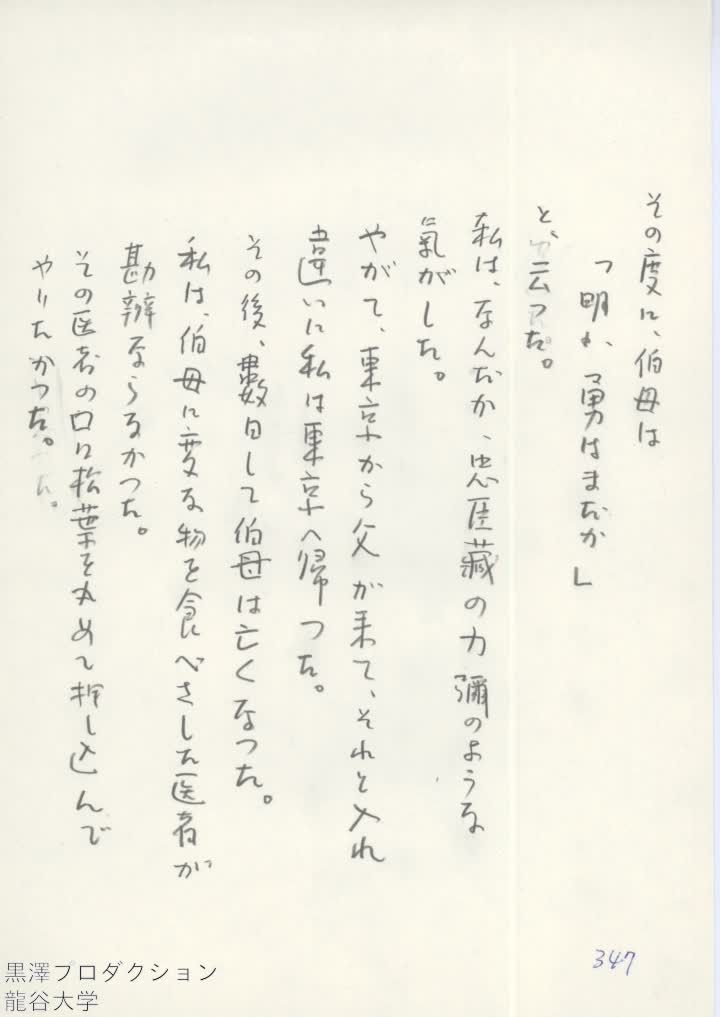 その度に、伯母は
「明か、勇はまだか」
と、云つた。
私は、なんだか、忠臣藏の力彌のような
氣がした。
やがて、東京から父が来て、それと入れ
違いに私は東京へ帰つた。
その後、數日して伯母は亡くなつた。
私は、伯母に変な物を食べさした医者が
勘辨ならなかつた。
その医者の口に松葉を丸めて押し込んで
やりたかつた。
347
黒澤プロダクション
龍谷大学